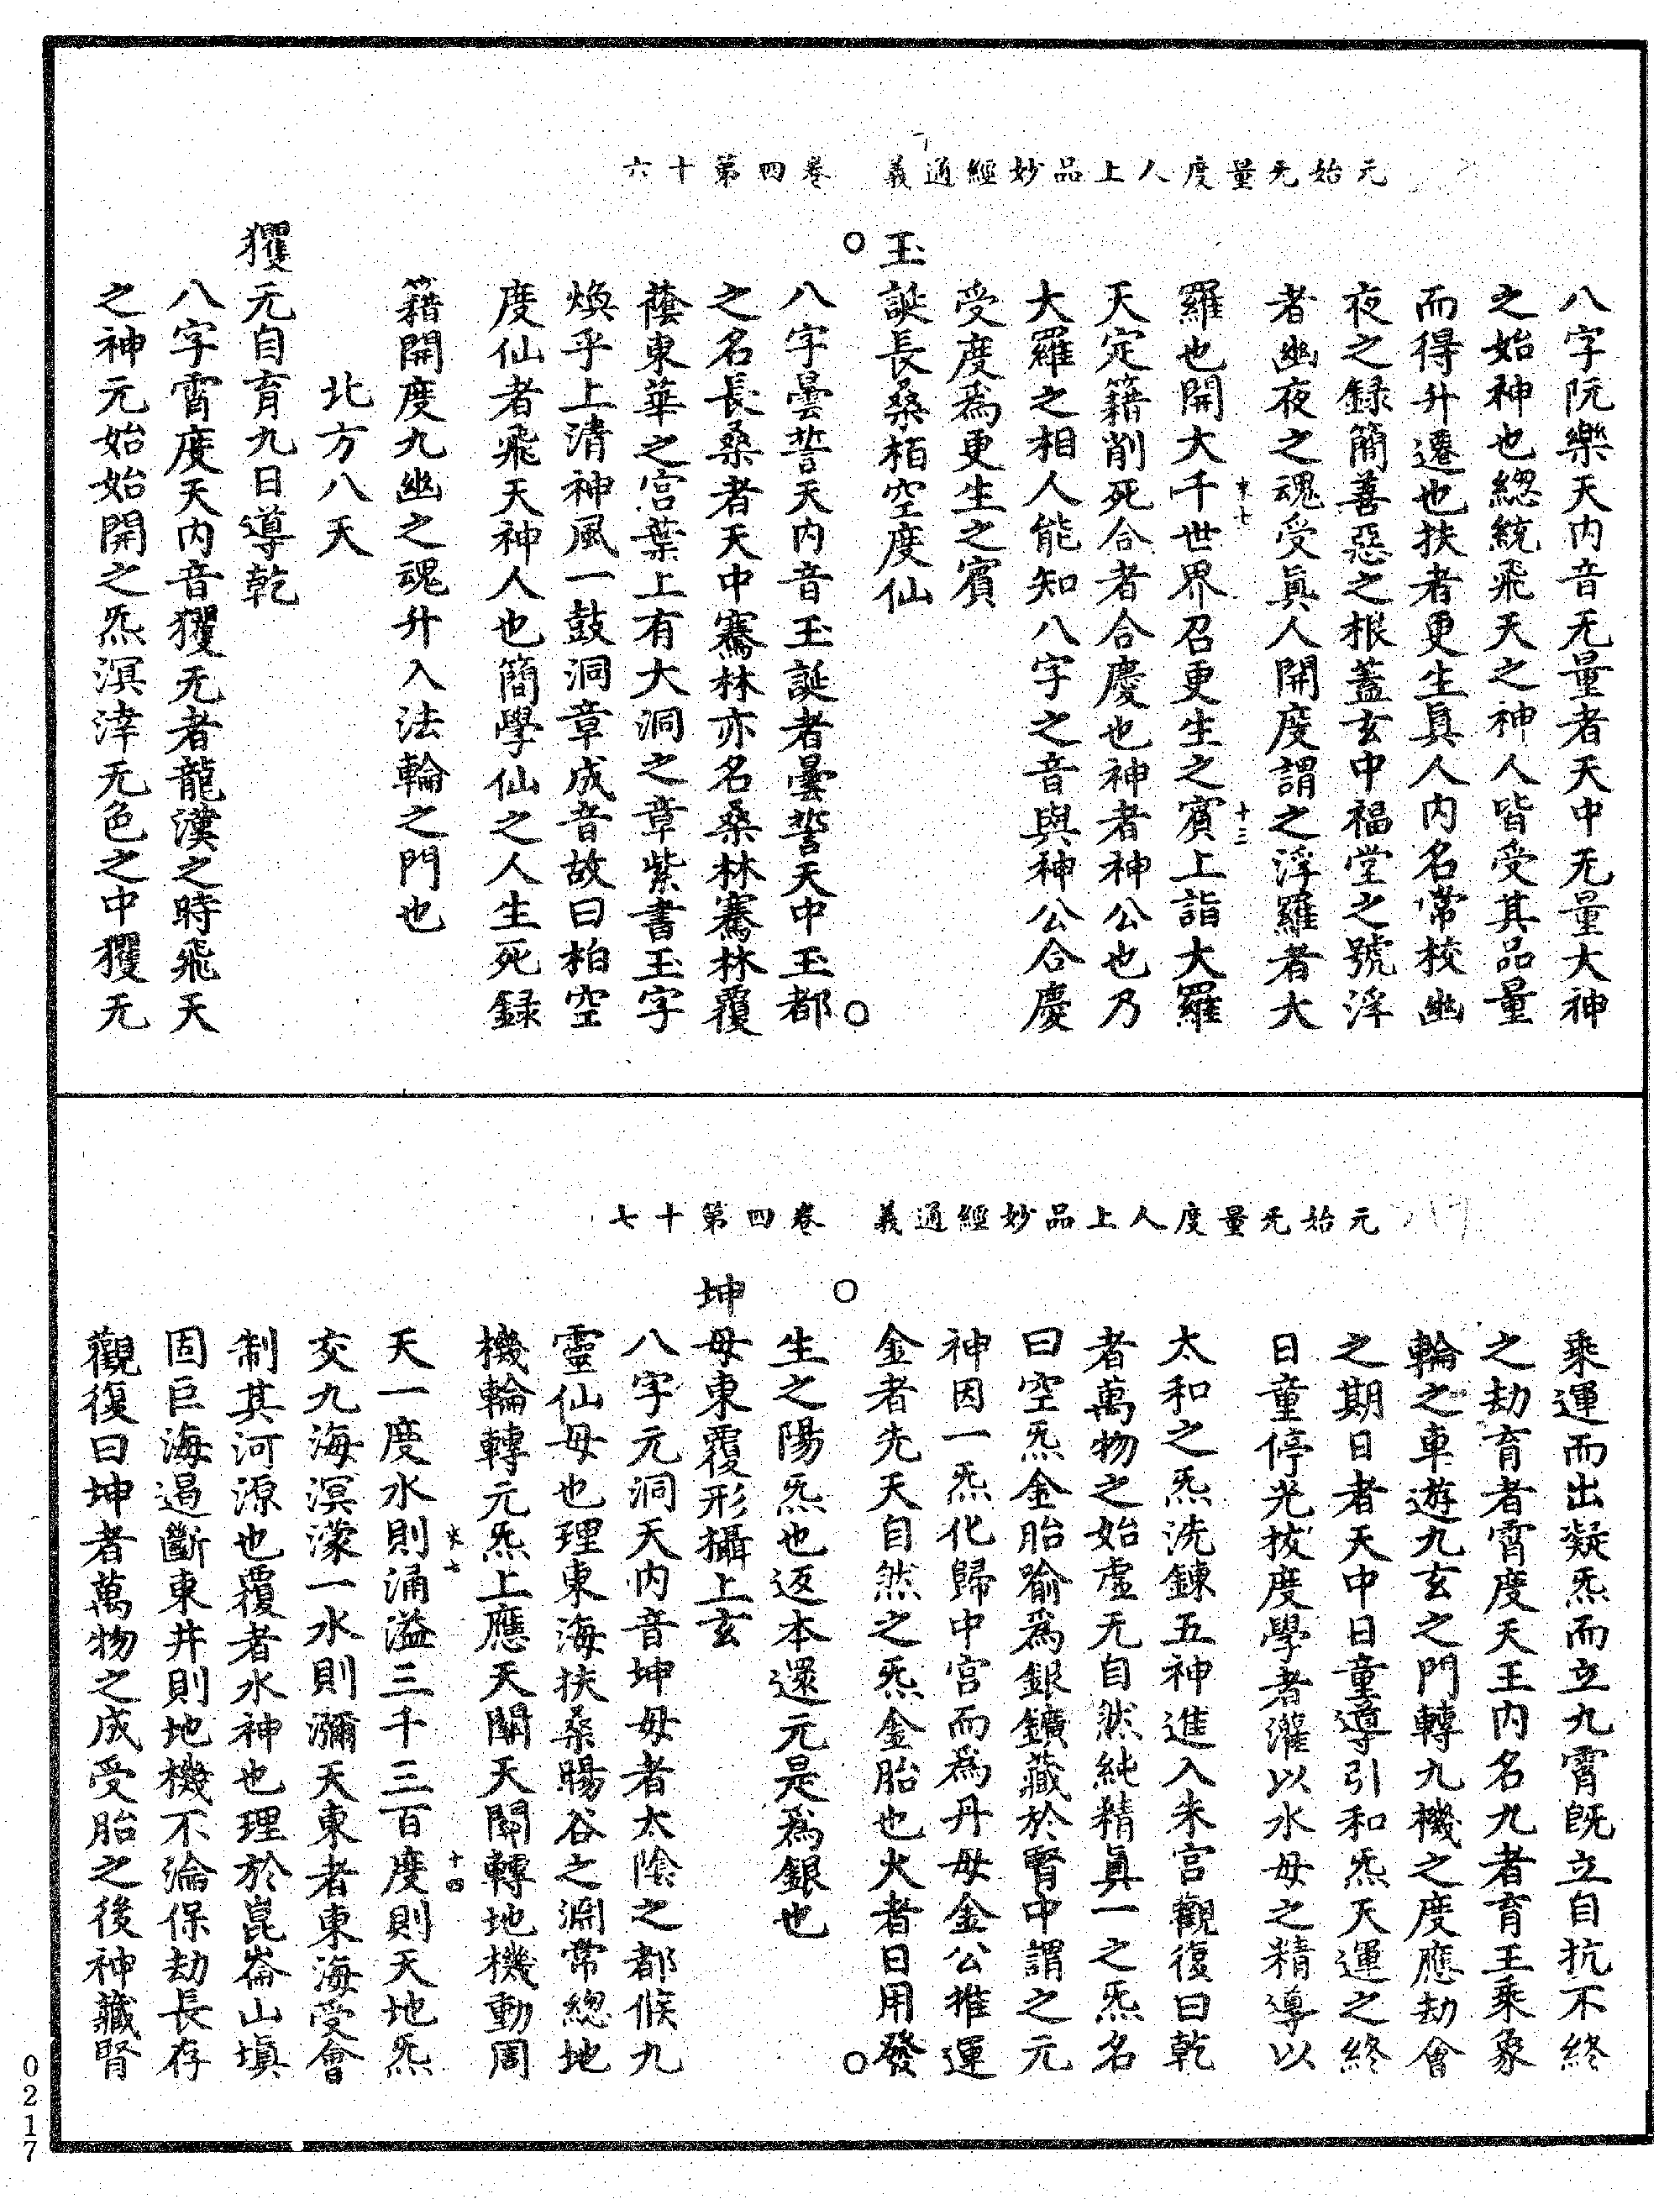 元始无量度人上品妙經通義　卷四第十六
八字阮樂天内音无量者天中无量大神
之始神也緫統飛天之神人皆受其品量
而得升遷也扶者更生真人内名常校幽
夜之録簡善惡之根蓋玄中福堂之號浮
者幽夜之魂受真人開度謂之浮羅者大
羅也開大千世界召更生之賓上詣大羅
天定籍削死合者合慶也神者神公也乃
大羅之相人能知八字之音與神公合慶
受度為更生之賓
玉誕長桑栢空度仙
八字曇誓天内音玉誕者曇誓天中玉都
之名長桑者天中騫林亦名桑林騫林覆
蔭東華之宮葉上有大洞之章紫書玉字
煥乎上清神風一鼓洞章成音故曰柏空
度仙者飛天神人也簡學仙之人生死録
籍開度九幽之魂升入法輪之門也
北方八天
玃无自育九日導乾
八字霄度天内音玃无者龍漢之時飛天
之神元始始開之炁溟涬无色之中玃无
元始无量度人上品妙經通義　卷四第十七
乘運而出凝炁而立九霄旣立自抗不終
之劫育者霄度天王内名九者育王乘象
輪之車遊九玄之門轉九機之度應劫會
之期日者天中日童導引和炁天運之終
日童停光拔度學者灌以水母之精導以
太和之炁洗鍊五神進入朱宮觀復曰乾
者萬物之始虛无自然純精真一之炁名
曰空炁金胎喻為銀鑛藏於腎中謂之元
神因一炁化歸中宮而為丹母金公推運
金者先天自然之炁金胎也火者日用發
生之陽炁也返本還元是為銀也
坤母東覆形攝上玄
八字元洞天内音坤母者太陰之都候九
靈仙母也理東海扶桑暘谷之淵常緫地
機輪轉元炁上應天關天關轉地機動周
天一度水則涌溢三千三百度則天地炁
交九海溟濛一水則瀰天東者東海受會
制其河源也覆者水神也理於崑崙山塡
固巨海遏斷東井則地機不淪保劫長存
觀復曰坤者萬物之成受胎之後神藏腎
0217